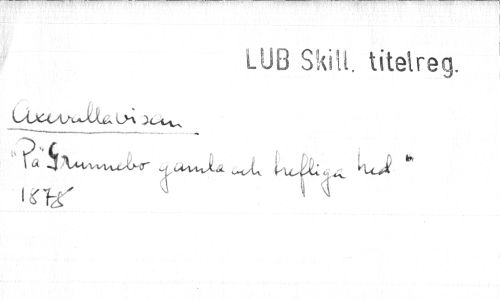 LUB Skill. titelreg.
Axevallavisan
"På Grunnebo gamla och trefliga hed"
1878